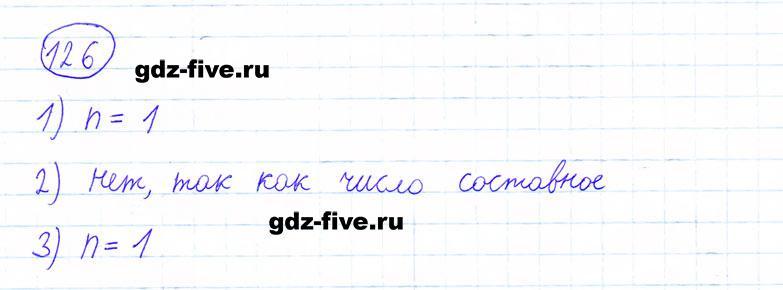 126
gdz-five.ru
1) n = 1
2) Нет, так как число составное
gdz-five.ru
3) n = 1